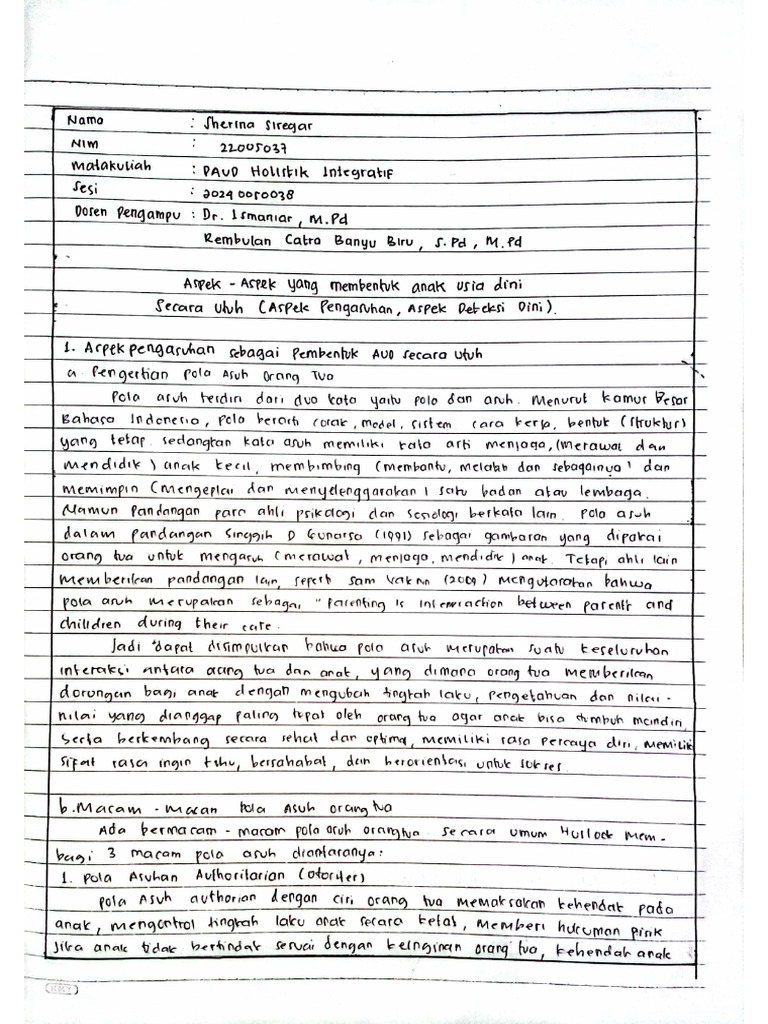 Nama : Sherina Siregar
NIM : 22005037
Matakuliah : PAUD Holistik Integratif
Sesi : 20240050038
Dosen Pengampu : Dr. Ismaniar, M.Pd
Rembulan Catra Banyu Biru, S.Pd, M.Pd
Aspek - Aspek yang membentuk anak usia dini
Secara utuh (Aspek Pengasuhan, Aspek Deteksi Dini).
1. Aspek pengasuhan sebagai Pembentuk AUD secara utuh
a. Pengertian pola Asuh Orang Tua
Pola asuh terdiri dari dua kata yaitu pola dan asuh. Menurut kamus Besar
Bahasa Indonesia, pola berarti corak, model, sistem cara kerja, bentuk (struktur)
yang tetap. sedangkan kata asuh memiliki kata arti menjaga, (merawat dan
mendidik) anak kecil, membimbing (membantu, melatih dan sebagainya) dan
memimpin (mengepalai dan menyelenggarakan) satu badan atau lembaga.
Namun pandangan para ahli psikologi dan sosiologi berkata lain. pola asuh
dalam pandangan Singgih D Gunarsa (1991) sebagai gambaran yang dipakai
orang tua untuk mengasuh (merawat, menjaga, mendidik) anak. Tetapi ahli lain
memberikan pandangan lain, seperti Sam Vaknin (2009) mengutarakan bahwa
pola asuh merupakan sebagai "parenting is interaction between parent's and
children during their care.
Jadi dapat disimpulkan bahwa pola asuh merupakan suatu keseluruhan
interaksi antara orang tua dan anak, yang dimana orang tua memberikan
dorongan bagi anak dengan mengubah tingkah laku, pengetahuan dan nilai -
nilai yang dianggap paling tepat oleh orang tua agar anak bisa tumbuh mandiri,
serta berkembang secara sehat dan optimal, memiliki rasa percaya diri, memiliki
sifat rasa ingin tahu, bersahabat, dan berorientasi untuk sukses.
b. Macam - macam Pola Asuh orang tua
Ada bermacam - macam pola asuh orangtua. secara umum Hurlock mem-
bagi 3 macam pola asuh diantaranya:
1. pola Asuhan Authoritarian (otoriter)
pola Asuh authorian dengan ciri orang tua memaksakan kehendak pada
anak, mengontrol tingkah laku anak secara ketat, memberi hukuman pisik
jika anak tidak bertindak sesuai dengan keinginan orang tua, kehendak anak
KKY